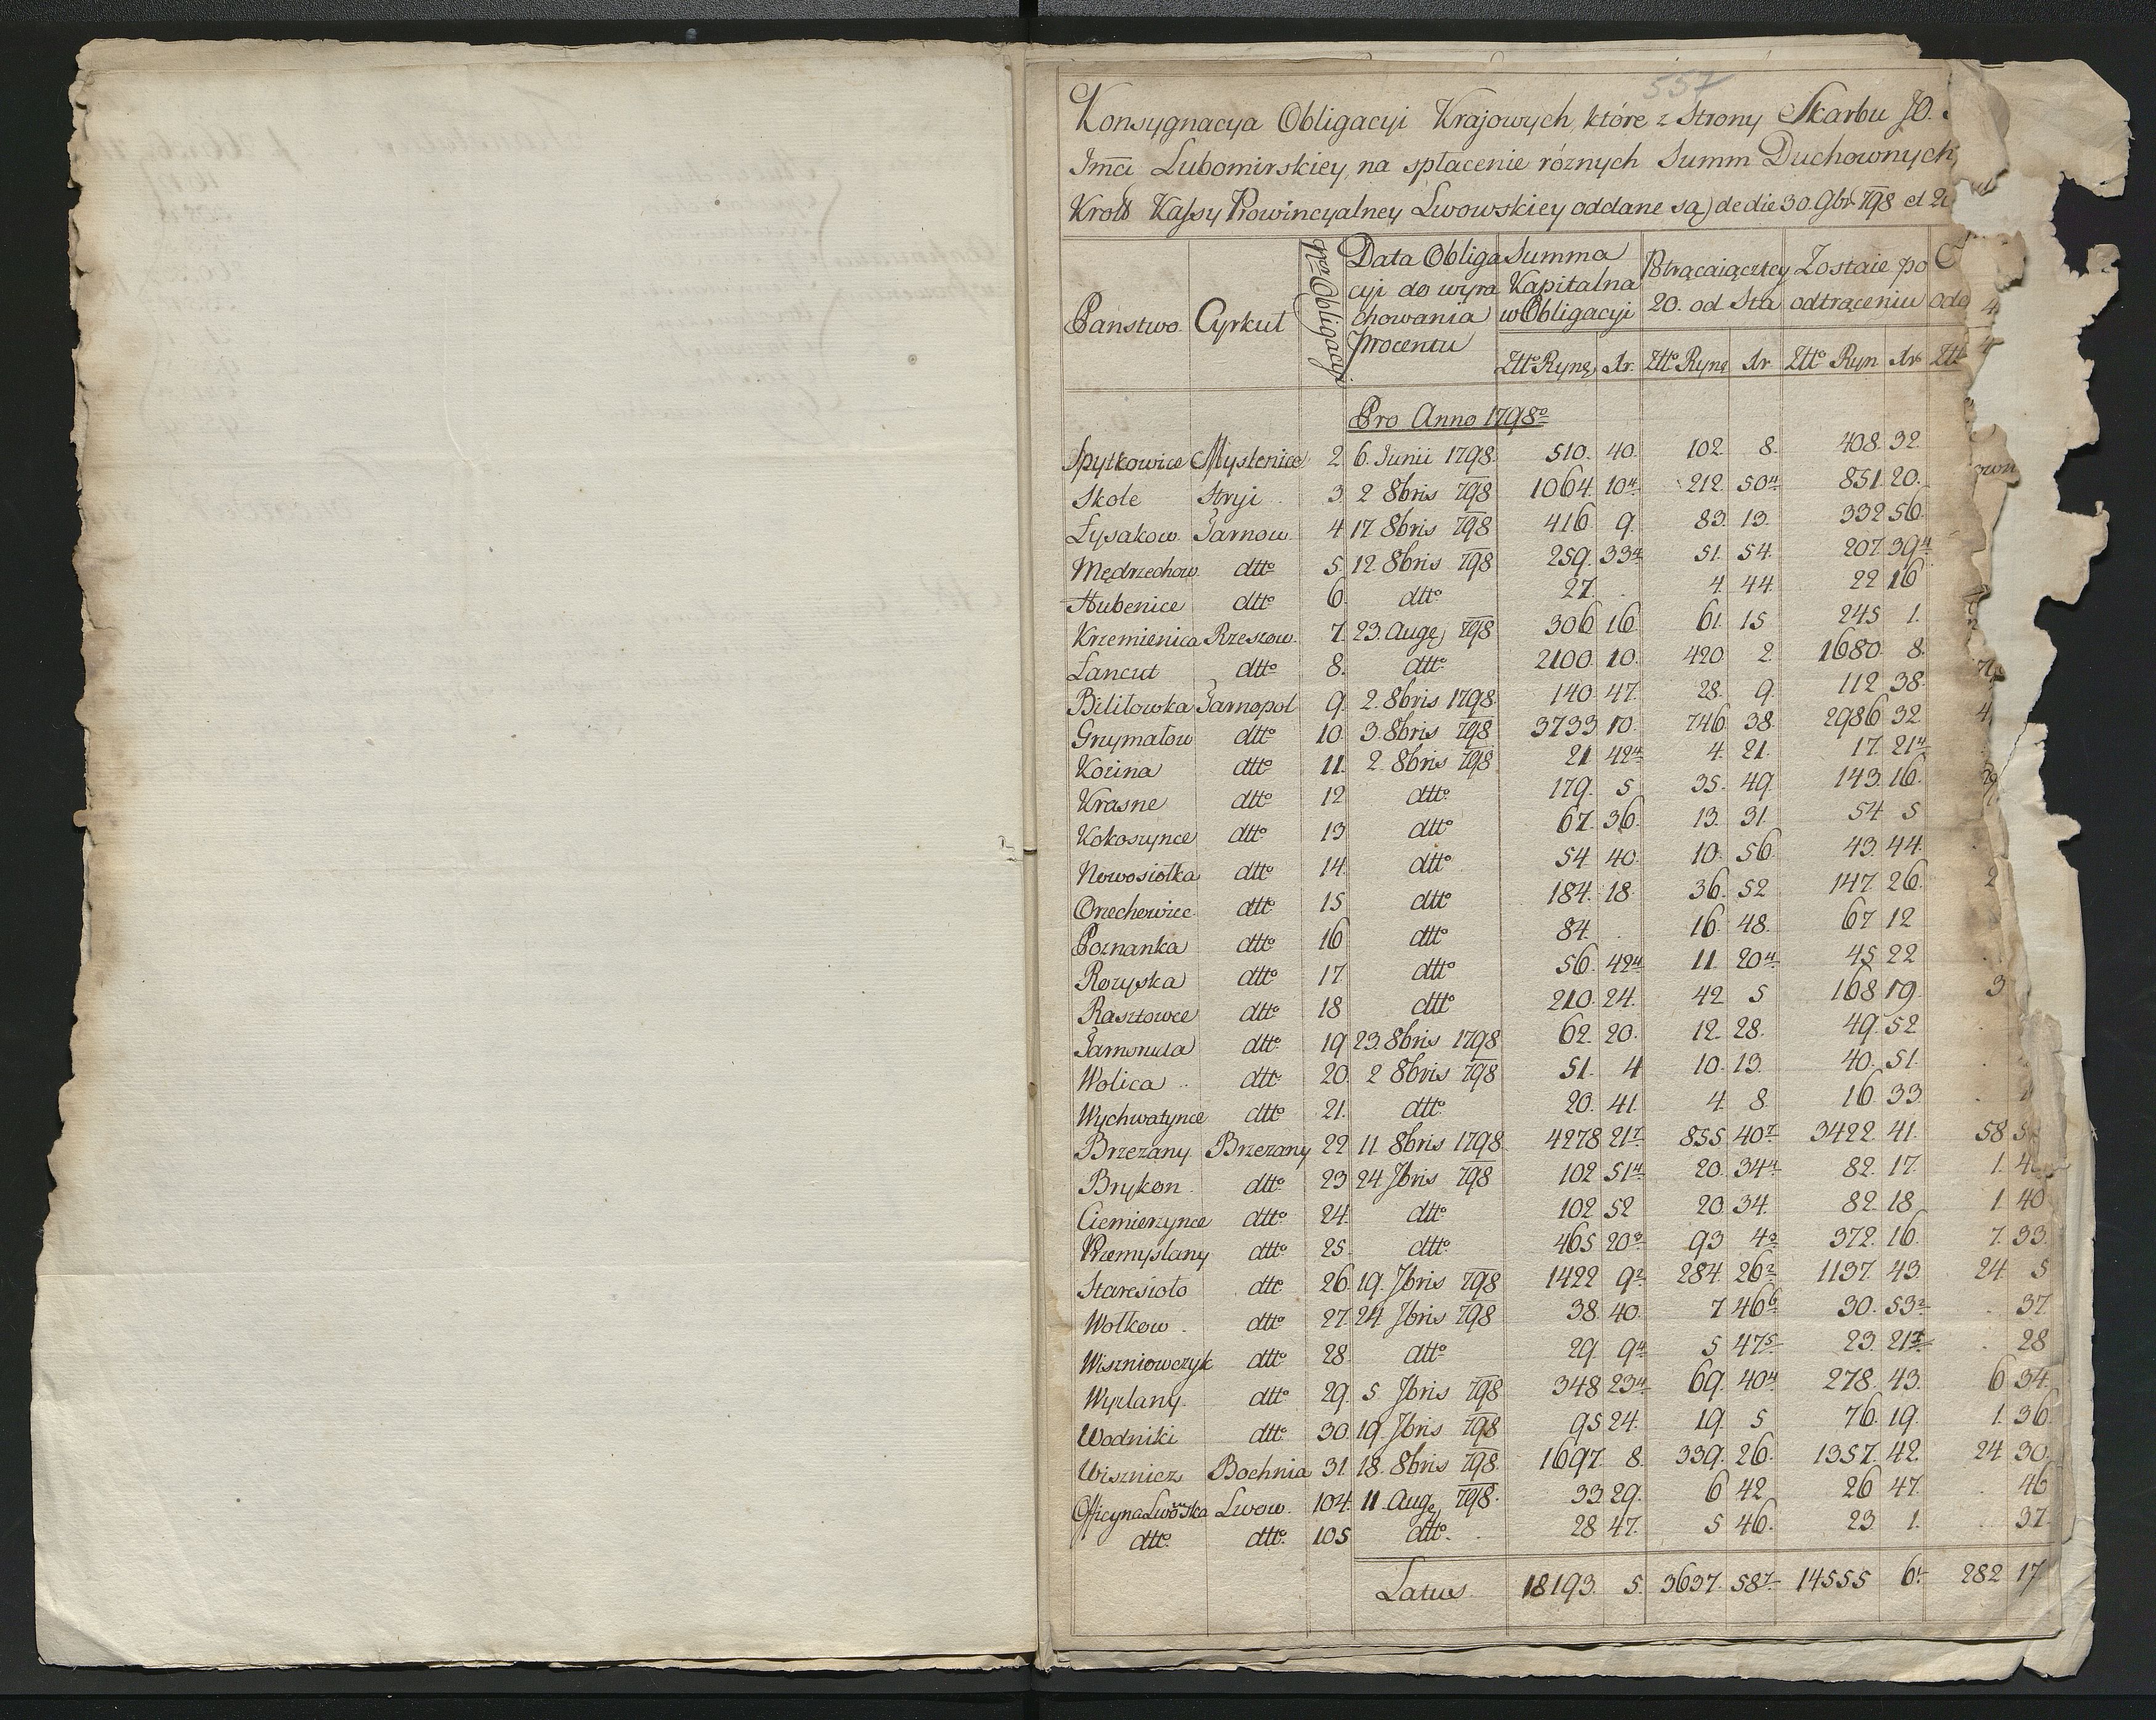 557
Konsygnacya Obligacyi Krajowych, które z Strony Skarbu JO.
Jmci Lubomirskiey, na spłacenie róznych Summ Duchownych,
Kassy Prowincyalney Lwowskiey oddane są) de die 30. 9br 798 et
Panstwo Cyrkuł Nro Obligacyi Data Obligacyi do wyrachowania Procentu Summa Kapitalna w Obligacyi Potrącaiąc tey 20. od Sta Zostaie po odtrąceniu
Złłº Ryng Xr. Złłº Ryng Xr Złłº Ryn Xr Złł
Pro Anno 1798º
Spytkowice Myslenice 2 6. Junii 1798. 510. 40. 102 8. 408. 32
Skole Stryi 3. 2 8bris 798 1064. 10 4. 212. 50 4. 851. 20.
Łysakow Tarnow 4 17 8bris 798 416 9. 83. 13. 332 56.
Mędrzechow dttº 5. 12. 8bris 798 259. 33 4. 51. 54. 207. 39 4
Hubenice dttº 6. dttº 27. . 4. 44. 22 16
Krzemienica Rzeszow. 7. 23. Aug 798 306 16 61. 15 245 1.
Lancut dttº 8. dttº 2100. 10. 420 2. 1680. 8.
Biliłowka Tarnopol 9. 2. 8bris 1798 140. 47. 28. 9. 112. 38.
Grzymałow dttº 10. 3. 8bris 798 3733 10. 746. 38. 2986 32
Kozina dttº 11. 2. 8bris 798 21 42 4. 4. 21. 17. 21 4
Krasne dttº 12 dttº 179. 5 35. 49. 143. 16.
Kokoszynce dttº 13 dttº 67. 36. 13. 31. 54 5
Nowosiołka dttº 14. dttº 54. 40. 10. 56. 43. 44.
Orzechowiec dttº 15 dttº 184. 18. 36. 52 147. 26.
Poznanka dttº 16 dttº 84. . 16. 48. 67. 12
Rozyska dttº 17. dttº 56. 42 4 11. 20 4. 45 22
Rasztowce dttº 18 dttº 210. 24. 42 5 168 19.
Tarnoruda dttº 19 23. 8bris 1798 62. 20. 12. 28. 49. 52
Wolica dttº 20. 2 8bris 798 51. 4 10. 13. 40. 51.
Wychwatynce dttº 21. dttº 20. 41. 4. 8. 16 33.
Brzezany Brzezany 22 11 8bris 1798. 4278 21 7. 855. 40 7. 3422. 41. 58
Brykon dttº 23 24 7bris 798 102 51 4. 20. 34 4. 82. 17. 1.
Ciemierzynce dttº 24. dttº 102 52 20. 34. 82. 18 1. 40
Przemyslany dttº 25. dttº 465 20 3. 93 4 3 372. 16. 7. 33.
Staresioło dttº 26. 19. 7bris 798 1422 9 2. 284. 26 2. 1137. 43 24 5
Wołkow dttº 27. 24 7bris 798 38. 40. 7 46 6. 30. 53 2. . 37
Wiszniowczyk dttº 28. dttº 29. 9 4. 5 47 5. 23. 21 7. . 28
Wyzlany dttº 29. 5 7bris 798 348 23 4. 69. 40 4. 278. 43. 6 34.
Wodniki dttº 30. 19. 7bris 798 95 24. 19. 5 76. 19. 1. 36
Wisznicz Bochnia 31. 18. 8bris 798. 1697. 8. 339. 26. 1357. 42. 24 30.
Officyna Lwowska Lwow. 104. 11 Aug 798. 33 29. 6 42 26 47. . 46
dttº dttº 105 dttº 28 47. 5 46. 23 1. . 37.
Latus 18193. 5. 3637. 58 7. 14555 6 1. 282 17